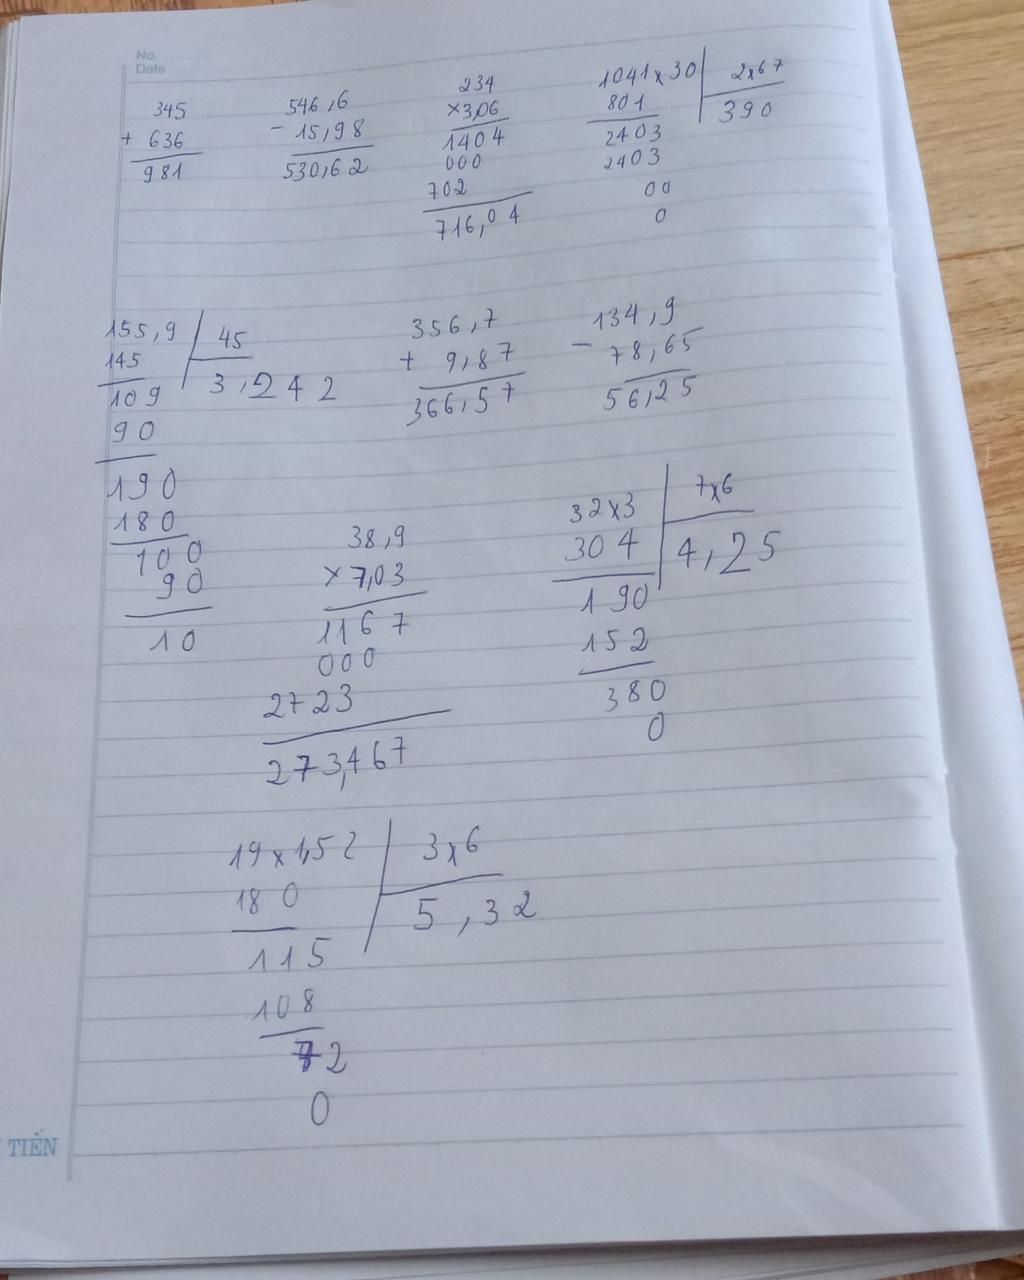 No.
Date
345
+ 636
981
546,6
- 15,98
530,62
234
×3,06
1404
000
702
716,04
1041x30 2x67
801 390
2403
2403
00
0
155,9 45
145 3,242
109
90
190
180
100
90
10
356,7
+ 9,87
366,57
134,9
- 78,65
56,25
38,9
× 7,03
1167
000
2723
273,467
32x3 7x6
304 4,25
190
152
380
0
19x1,52 3x6
180 5,32
115
108
72
0
TIẾN